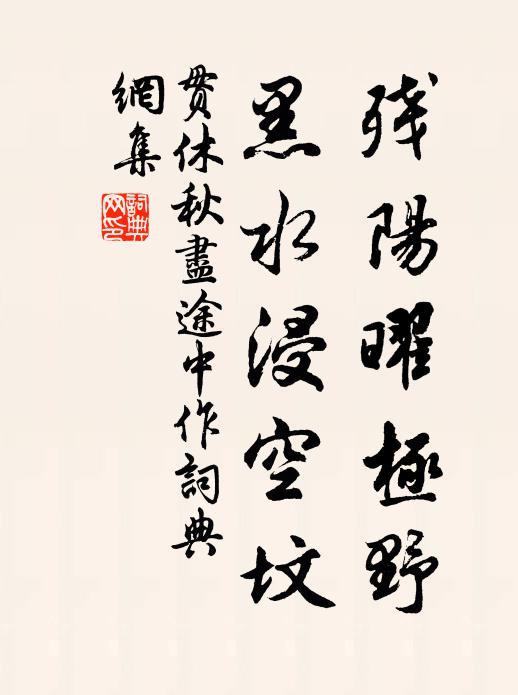 残陽曜極野
黑水浸空坟
贯休秋盡途中作詞典
網集
詞典
网印